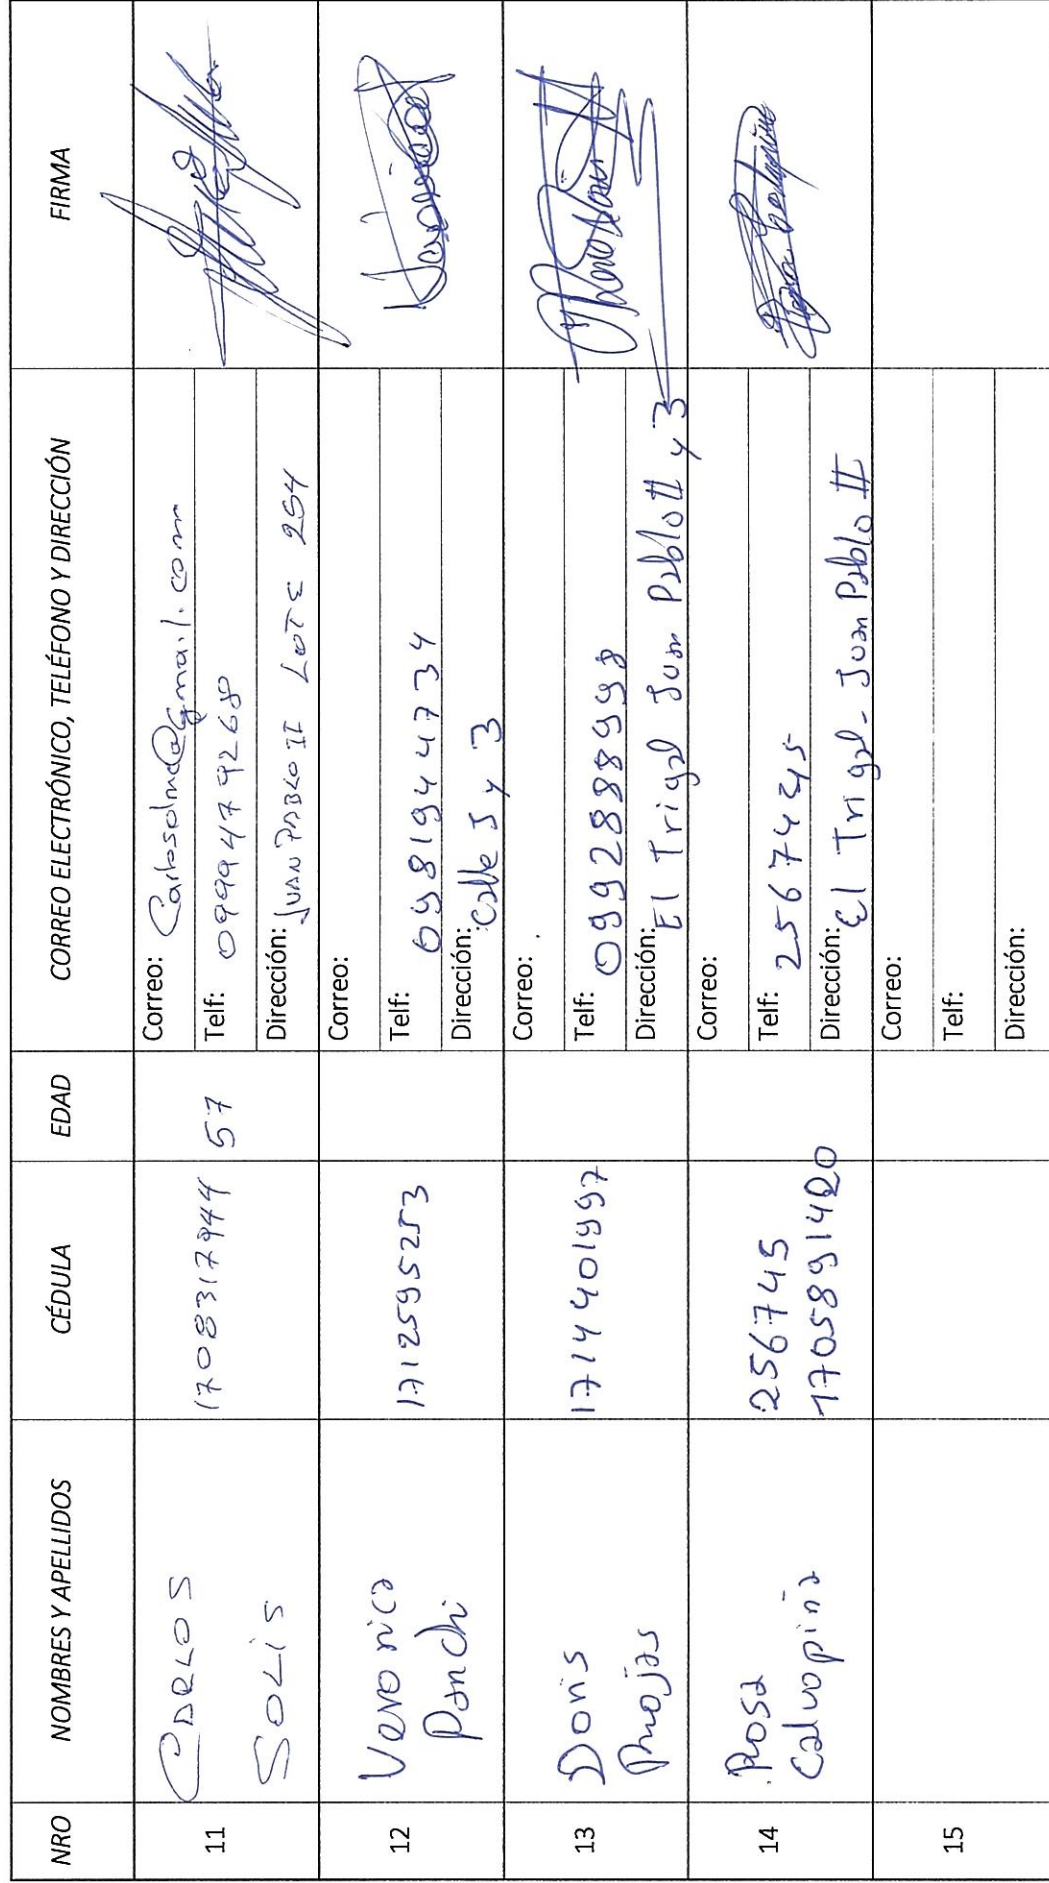 NRO NOMBRES Y APELLIDOS CÉDULA EDAD CORREO ELECTRÓNICO, TELÉFONO Y DIRECCIÓN FIRMA
11
CARLOS
SOLIS
1708317944
57
Correo: Carlosolmd@Gmail.com
Telf: 0999479268
Dirección: JUAN PABLO II LOTE 254
12
Veronica
Panchi
1712595253
Correo:
Telf: 0981944734
Dirección: Calle J y 3
13
Doris
Rojas
1714401997
Correo:
Telf: 0992888998
Dirección: El Trigal Juan Pablo II y 3
14
Rosa
Calvopiña
256745
1705891420
Correo:
Telf: 2567445
Dirección: El Trigal - Juan Pablo II
15
Correo:
Telf:
Dirección: